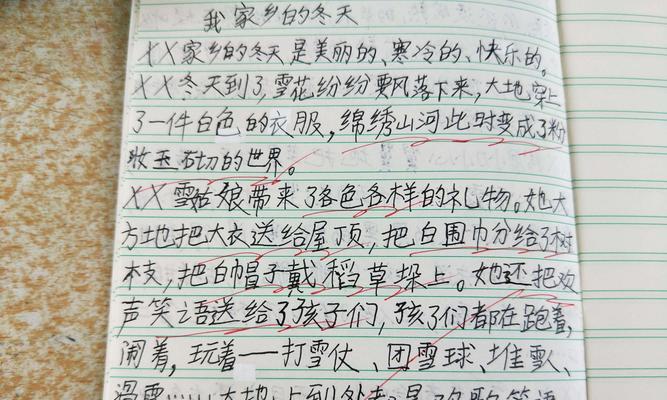 我家乡的冬天
XX家乡的冬天是美丽的、寒冷的、快乐的。
XX冬天到了,雪花纷纷要风落下来,大地穿上
了一件白色的衣服,绵绣山河此时变成了粉
妆玉切的世界。
XX雪姑娘带来了各色各样的礼物。她大
方地把大衣送给屋顶,把白围巾分给了树
枝,把白帽子戴稻草垛上。她还把欢
声笑语送给了孩子们,孩子们都在跑着,
闹着,玩着——打雪仗、团雪球、堆雪人、
滑雪……大地上到处都是欢歌笑语